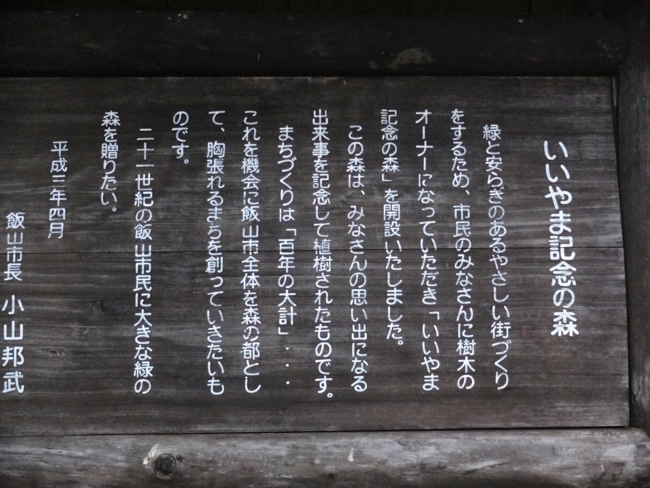 いいやま記念の森
緑と安らぎのあるやさしい街づくり
をするため、市民のみなさんに樹木の
オーナーになっていただき「いいやま
記念の森」を開設いたしました。
この森は、みなさんの思い出になる
出来事を記念して植樹されたものです。
まちづくりは「百年の大計」・・・
これを機会に飯山市全体を森の都とし
て、胸張れるまちを創っていきたいも
のです。
二十一世紀の飯山市民に大きな緑の
森を贈りたい。
平成三年四月
飯山市長 小山邦武